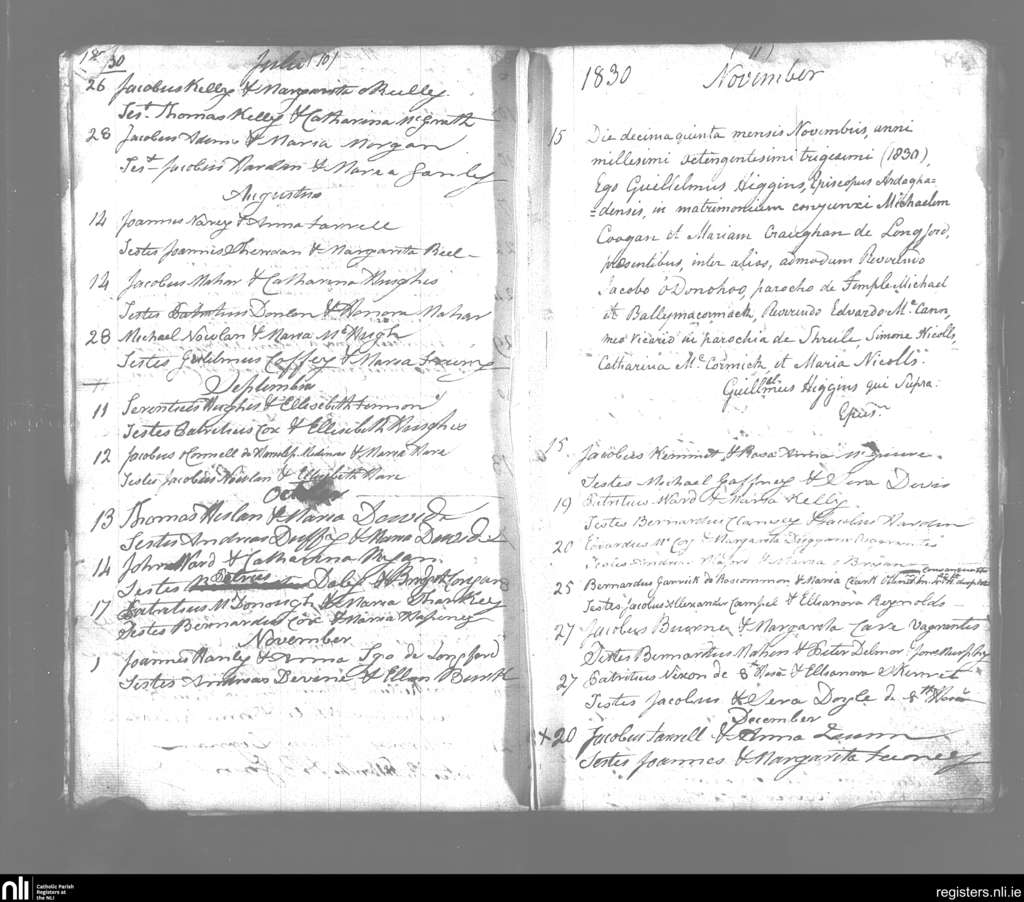 1830 Julii (10)
26 Jacobus Kelly & Margarita Reilly
Test Thomas Kelly & Catharina McGrath
28 Jacobus Adams & Maria Morgan
Test Jacobus Nardan & Maria Ganly
Augustus
14 Joannes Narey & Anna Farrell
Testes Joannes Sheridan & Margarita Reel
14 Jacobus Mahar & Catharina Hughes
Testes Patritius Donlon & Honora Mahar
28 Michael Nowlan & Maria McHugh
Testes Gulielmus Caffrey & Maria
Septembris
11 Terentius Hughes & Ellisebith Lennon
Testes Patritius Cox & Ellisebith Hughes
12 Jacobus Connell de & Maria Kane
Testes Jacobus Nowlan & Elizabeth Kane
October
13 Thomas & Maria Dowd
Testes Andreas Duffy & Maria
14 John Ward & Catharina Regan
Petrus
Testes Daly & Bridget Congan
17 Patritius McDonough & Maria Sharkey
Testes Bernardus Cox & Maria
November
1 Joannes Hanly & Anna Igo de Longford
Testes Andreas Devine & Ellen Burke
(11)
1830 November
15 Die decima quinta mensis Novembris, anni
millesimi octengentesimi trigesimi (1830),
Ego Guillelmus Higgins, Episcopus Ardagha-
-densis, in matrimonium conjunxi Michaelem
Coogan et Mariam Craughan de Longford,
præsentibus, inter alios, admodum Reverendo
Jacobo O'Donohoo, parocho de Temple Michael
et Ballymacormack, Reverendo Edvardo McCann,
meo vicario in parochia de Shrule, Simone Nicolls,
Catharina McCormick, et Maria Nicolls.
Guillmus Higgins qui Supra.
Epus.
15 Jacobus Kemmet & Rosa Anna McGuire.
Testes Michael Gaffney & Sera Davis
19 Patritius Ward & Maria Kelly
Testes Bernardus Clancey & Jacobus Nardan
20 Edvardus McCoy & Margarita Duggan
Testes Andreas & Maria O Brien
25 Bernardus Garvik de Roscommon & Maria
Testes Jacobus Allexander Campel & Elleanora Reynolds
27 Jacobus Buorne & Margarota Care Vagrantes
Testes Bernardus Mahon & Peter Delmor Jane Murphy
27 Patritius Nixon de & Elleanora Kemmet
Testes Jacobus & Sera Doyle de
December
+20 Jacobus Farrell & Anna Quinn
Testes Joannes & Margarita
nli Catholic Parish
Registers at
the NLI
registers.nli.ie